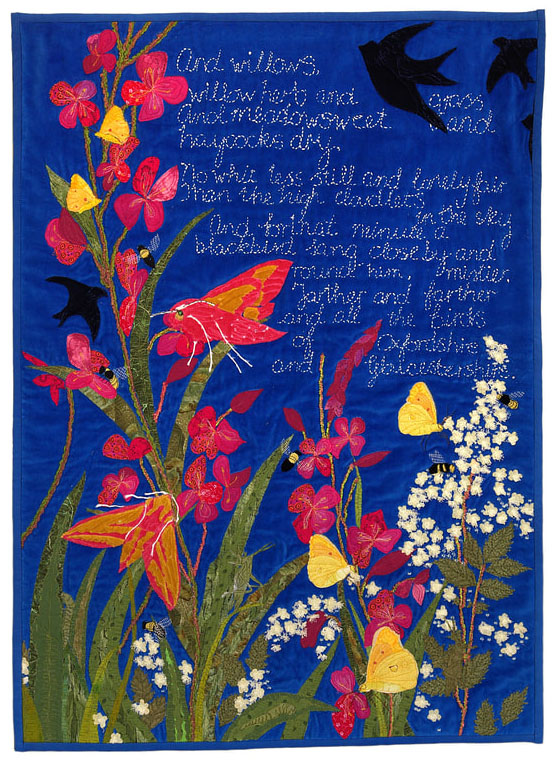 And willows,
willow herb and grass
and meadowsweet and
haycocks dry,
No whit less still and lonely fair
than the high cloudlets
in the sky
And for that minute a
blackbird sang close by and
round him, mistier,
Farther and farther
and all the birds
of Oxfordshire
and Gloucestershire